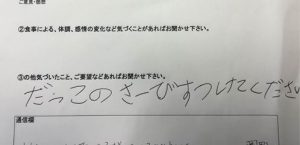 ご意見・感想
②食事による、体調、感情の変化など気づくことがあればお聞かせ下さい。
③の他気づいたこと、ご要望などあればお聞かせ下さい。
だっこのさーびすつしてくださ
通信欄